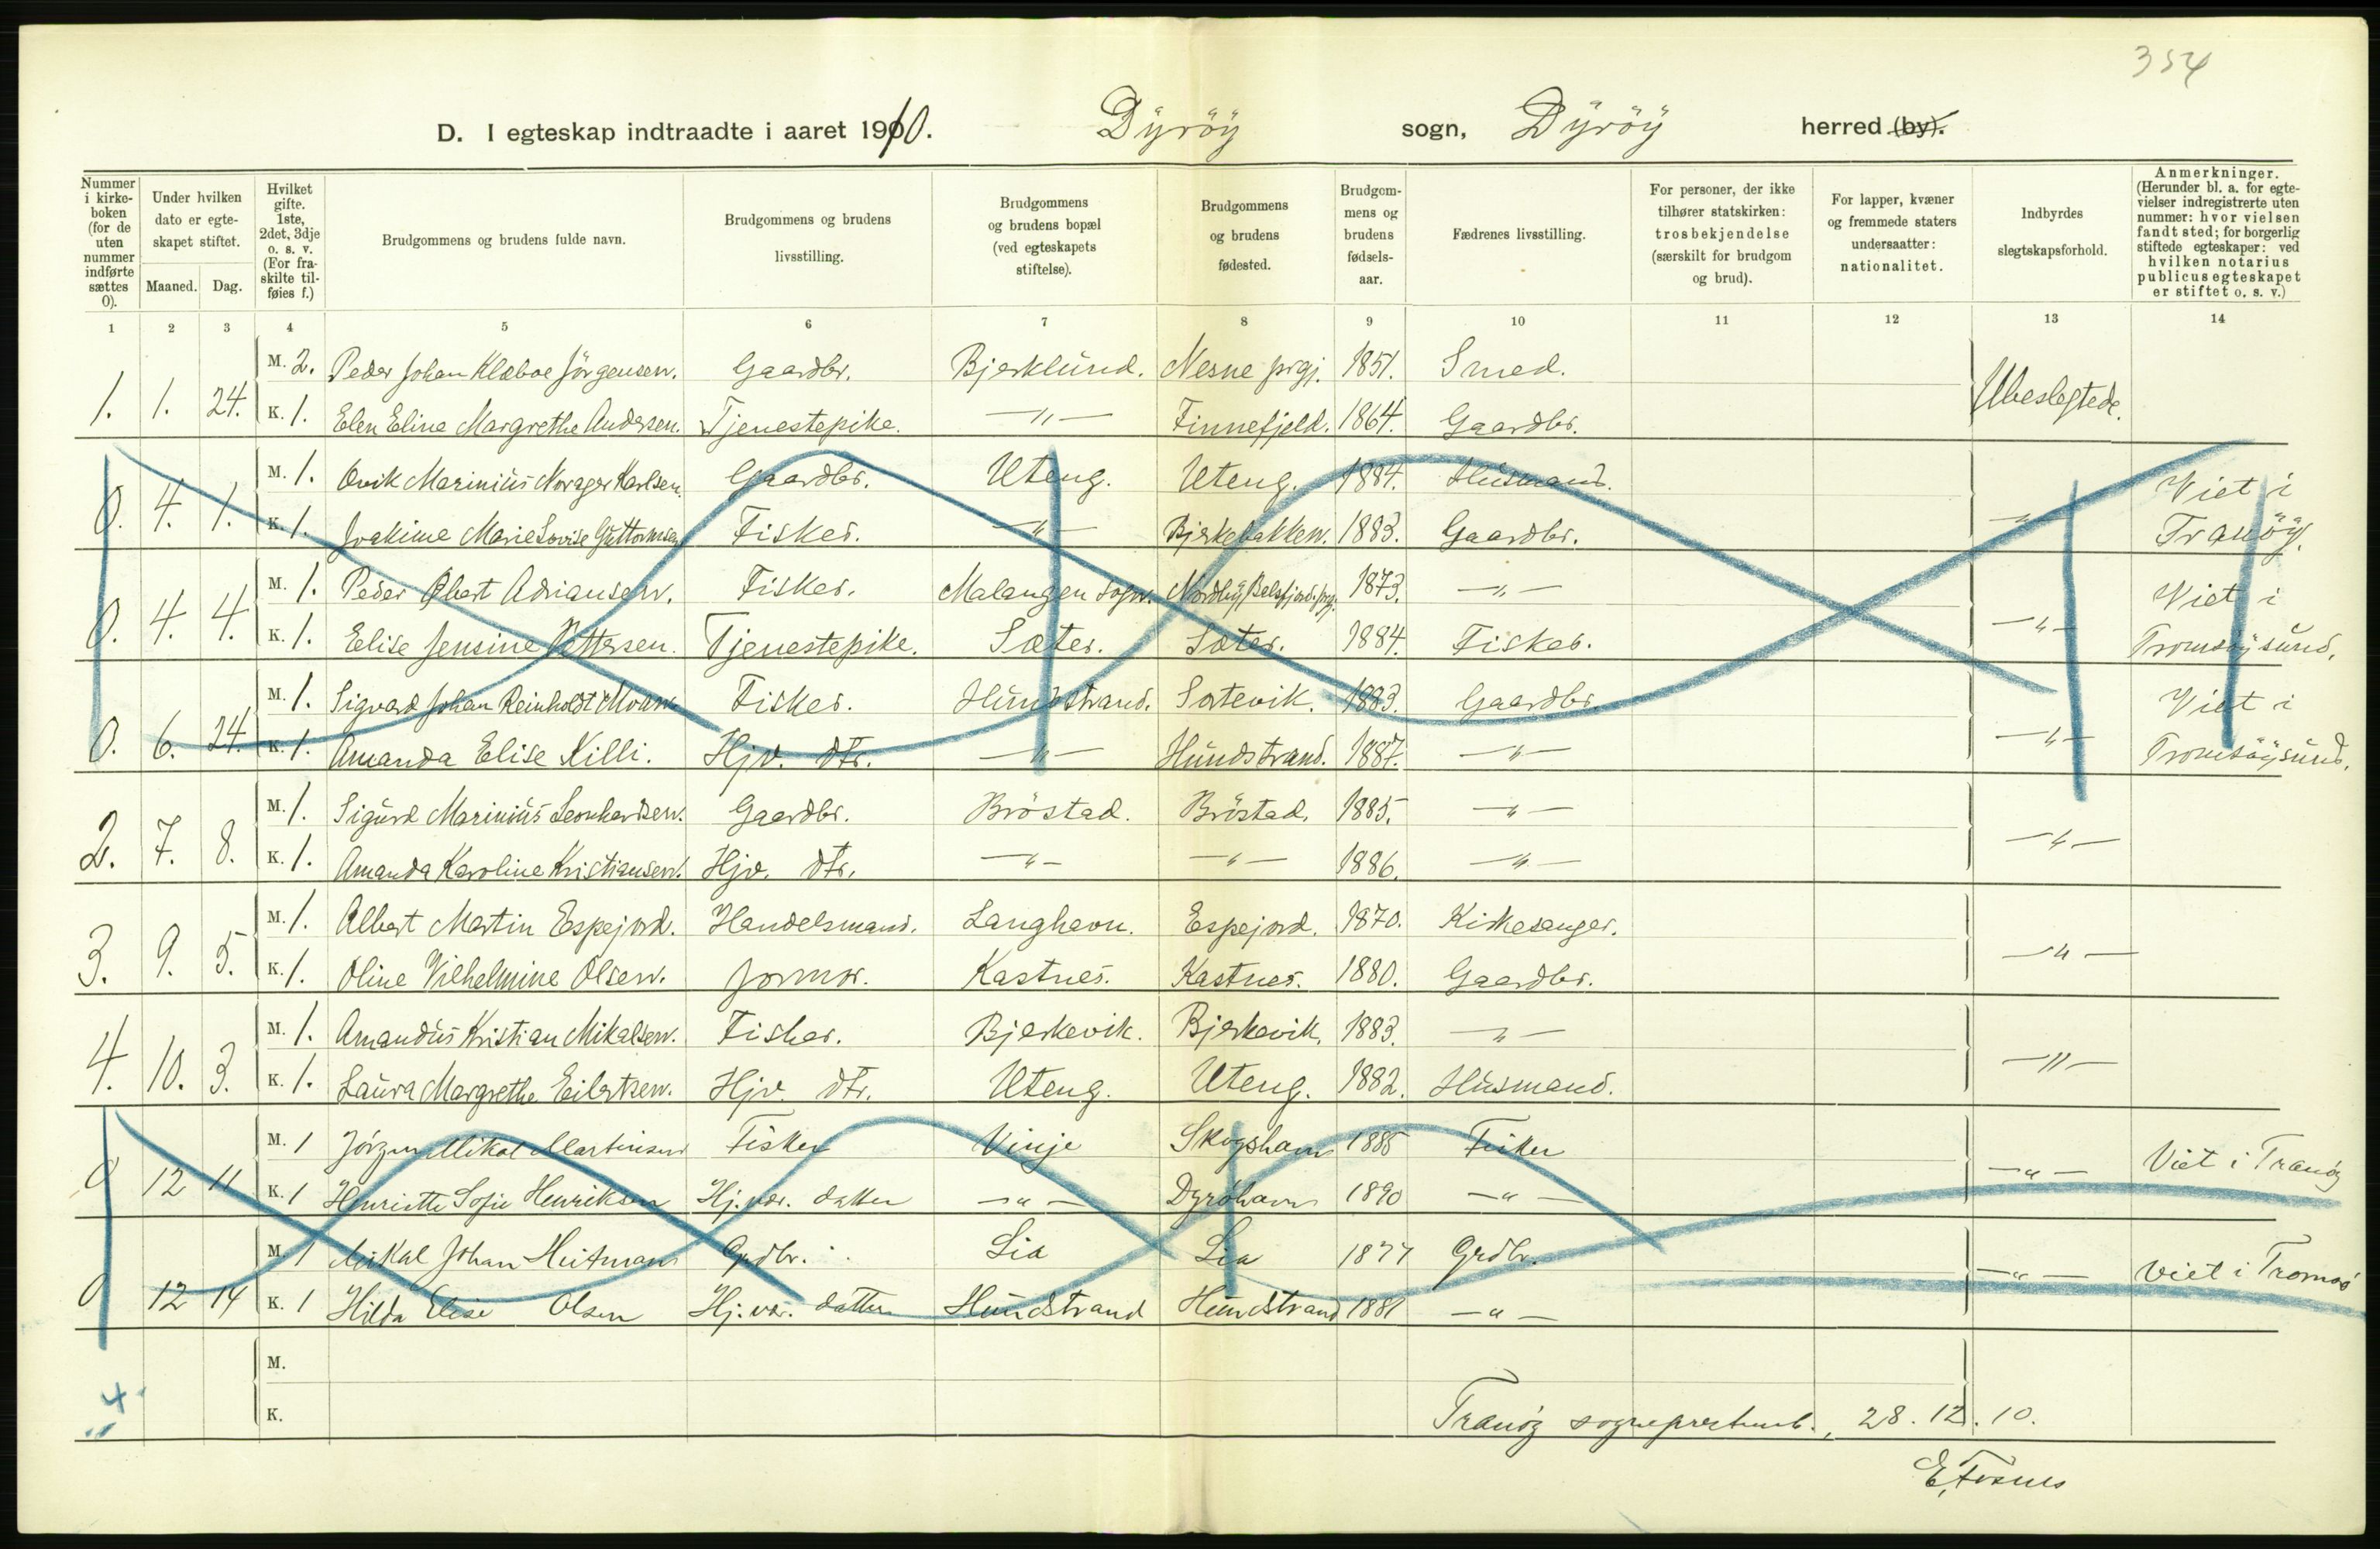 354
D. I egteskap indtraadte i aaret 1910. Dyröy sogn, Dyröy herred (by).
Nummer i kirkeboken (for de uten nummer indførte sættes 0). Under hvilken dato er egteskapet stiftet. Maaned. Dag. Hvilket gifte. 1ste, 2det, 3dje o. s. v. (For fraskilte tilføies f.) Brudgommens og brudens fulde navn. Brudgommens og brudens livsstilling. Brudgommens og brudens bopæl (ved egteskapets stiftelse). Brudgommens og brudens fødested. Brudgommens og brudens fødselsaar. Fædrenes livsstilling. For personer, der ikke tilhører statskirken: trosbekjendelse (særskilt for brudgom og brud). For lapper, kvæner og fremmede staters undersaatter: nationalitet. Indbyrdes slegtskapsforhold. Anmerkninger. (Herunder bl. a. for egtevielser indregistrerte uten nummer: hvor vielsen fandt sted; for borgerlig stiftede egteskaper: ved hvilken notarius publicus egteskapet er stiftet o. s. v.)
1 2 3 4 5 6 7 8 9 10 11 12 13 14
M. 2. Peder Johan Klæboe Jörgensen. Gaardbr. Bjerklund. Nesne prgj. 1851. Smed.
1. 1. 24. K. 1. Elen Eline Margrethe Andersen. Tjenestepike. —"— Finnefjeld. 1864. Gaardbr. Ubeslegtede.
M. 1. Ovik Marinius Norager Karlsen. Gaardbr. Uteng. Uteng. 1884. Husmand. Viet i
0. 4. 1. K. 1. Joakime Marie Lovise Guttormsen Fisker. —"— Bjerkebakken. 1883. Gaardbr. —"— Tranöy.
M. 1. Peder Obert Adriansen. Fisker. Malangen sogn. Nordby, Balsfjord prgj. 1873. —"— Viet i
0. 4. 4. K. 1. Elise Jensine Pettersen. Tjenestepike. Sæter. Sæter. 1884. Fisker. —"— Tromsöysund.
M. 1. Sigvard Johan Reinholdt Moen. Fisker. Hundstrand. Sørtevik. 1883. Gaardbr. Viet i
0. 6. 24. K. 1. Amanda Elise Killi. Hjv. dtr. —"— Hundstrand. 1887. —"— —"— Tromsöysund.
M. 1. Sigurd Marinius Leonhardsen. Gaardbr. Bröstad. Bröstad. 1885. —"—
2. 7. 8. K. 1. Amanda Karoline Kristiansen. Hjv. dtr. —"— —"— 1886. —"— —"—
M. 1. Albert Martin Espejord. Handelsmand. Langhavn. Espejord. 1870. Kirkesanger.
3. 9. 5. K. 1. Oline Vilhelmine Olsen. Jormor. Kastnes. Kastnes. 1880. Gaardbr. —"—
M. 1. Amandus Kristian Mikalsen. Fisker. Bjerkevik. Bjerkevik. 1883. —"—
4. 10. 3. K. 1. Laura Margrethe Eilertsen. Hjv. dtr. Uteng. Uteng. 1882. Husmand. —"—
M. 1 Jörgen Mikal Martinsen Fisker Vinje Skogshavn 1885 Fisker
0 12 11 K. 1 Henriette Sofie Henriksen Hj.vær. datter —"— Dyröhavn 1890 —"— —"— Viet i Tranöy
M. 1 Mikal Johan Heitmann Grdbr. Lia Lia 1877 Grdbr.
0 12 14 K. 1 Hilda Elise Olsen Hj.vær. datter Hundstrand Hundstrand 1881 —"— —"— Viet i Tromsö
M.
4
K.
Tranöy sogneprestemb., 28.12.10.
E. Fosnes